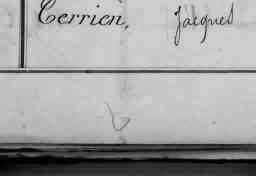 Terrien, Jacques